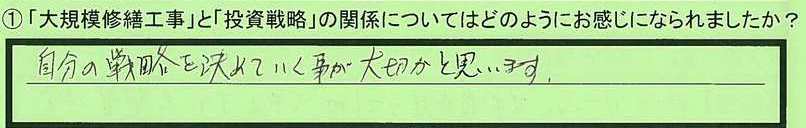 ①「大規模修繕工事」と「投資戦略」の関係についてはどのようにお感じになられましたか？
自分の戦略を決めていく事が大切かと思います.